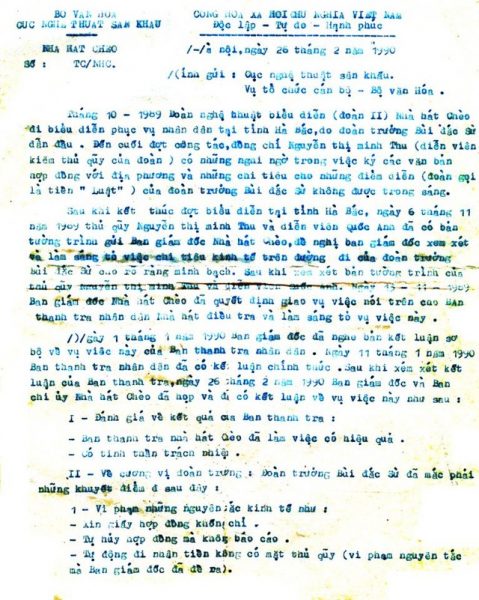 BỘ VĂN HOÁ
CỤC NGHỆ THUẬT SÂN KHẤU
CỘNG HOÀ XÃ HỘI CHỦ NGHĨA VIỆT NAM
Độc lập - Tự do - Hạnh phúc
NHÀ HÁT CHÈO
SỐ : TC/NHC.
/-/à nội,ngày 26 tháng 2 năm 1990
/(ính gửi : Cục nghệ thuật sân khấu.
Vụ tổ chức cán bộ - Bộ văn Hóa .
Tháng 10 - 1989 Đoàn nghệ thuật biểu diễn (đoàn II) Nhà hát Chèo
đi biểu diễn phục vụ nhân dân tại tỉnh Hà Bắc,do đoàn trưởng Bùi đắc Sử
dẫn đầu . Đến cuối đợt công tác,đồng chí Nguyễn thị minh Thu (diễn viên
kiêm thủ qũy của đoàn ) có những ngai ngờ trong việc ký các văn bản
hợp đồng với địa phương và những chi tiêu cho những điểm diễn (đoàn gọi
là tiền " Luật" ) của đoàn trưởng Bùi đắc Sử không được trong sáng.
Sau khi kết thúc đợt biểu diễn tại tỉnh Hà Bắc, ngày 6 tháng 11
năm 1989 thủ qũy Nguyễn thị minh Thu và diễn viên Quốc Anh đã có bản
tường trình gửi Ban giám đốc Nhà hát Chèo,đề nghị ban giám đốc xem xét
và làm sáng tỏ việc chi tiêu kinh tế trên đường đi của đoàn trưởng
Bùi đắc Sử cho rõ ràng minh bạch. Sau khi xem xét bản tường trình của
thủ qũy Nguyễn thị minh Thu và diễn viên Ngày 13 - 11 - 1989
Ban giám đốc Nhà hát Chèo đã quyết định giao vụ việc nói trên cho Ban
thanh tra nhân dân Nhà hát điều tra và làm sáng tỏ vụ việc này .
/)/gày 1 tháng 1 năm 1990 Ban giám đốc đã nghe bản kết luận sơ
bộ về vụ việc này của Ban thanh tra nhân dân . Ngày 11 tháng 1 năm 1990
Ban thanh tra nhân dân đã có kết luận chính thức .Sau khi xem xét kết
luận của Ban thanh tra,ngày 26 tháng 2 năm 1990 Ban giám đốc và Ban
chi ủy Nhà hát Chèo đã họp và đi có kết luận về vụ này như sau :
I - Đánh giá về kết quả của Ban thanh tra :
- Ban thanh tra nhà hát Chèo đã làm việc có hiệu quả .
- Có tinh thần trách nhiệm .
II - Về cương vị đoàn trưởng : Đoàn trưởng Bùi đắc Sử đã mắc phải
những khuyết điểm ở sau đây :
1 - Vi phạm những nguyên tắc kinh tế như :
- Xin giấy hợp đồng khống chỉ .
- Tự hủy hợp đồng mà không báo cáo .
- Tự động đi nhận tiền không có mặt thủ qũy (vi phạm nguyên tắc
mà Ban giám đốc đã đề ra).